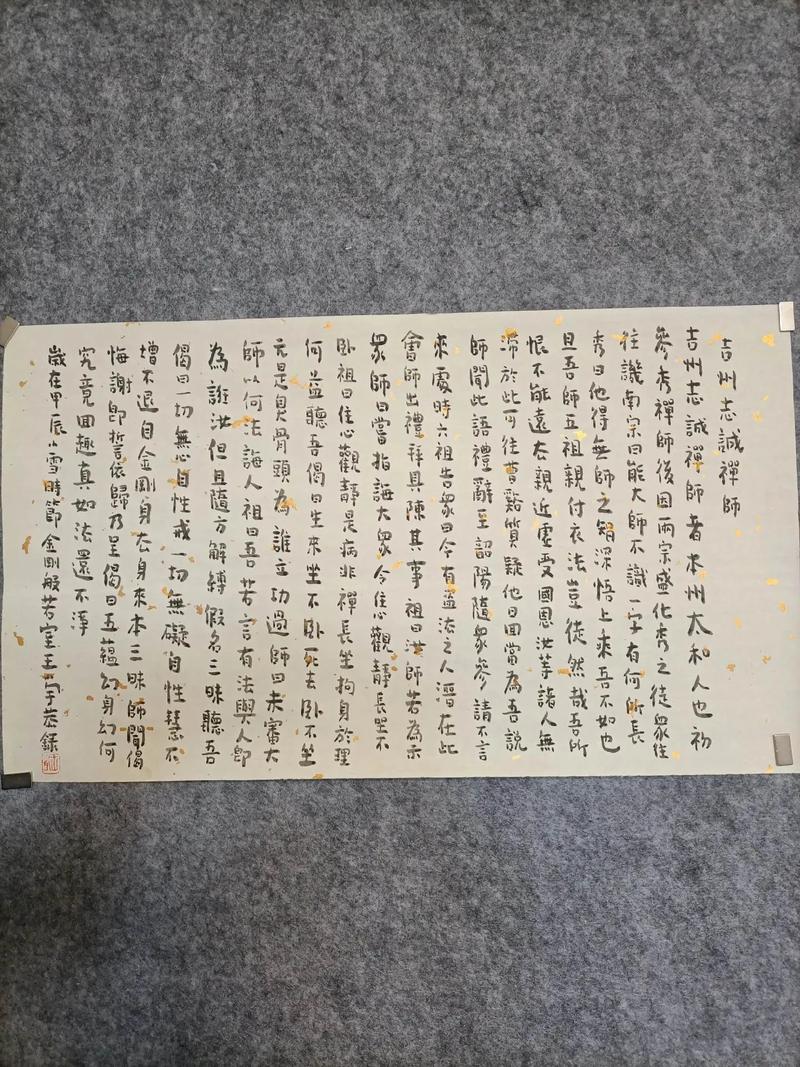 吉州志誠禪師
吉州志誠禪師者本州太和人也初
參秀禪師後因兩宗盛化秀之徒眾往
往譏南宗曰能大師不識一字有何所長
秀曰他得無師之智深悟上乘吾不如也
且吾師五祖親付衣法豈徒然哉吾所
恨不能遠去親近虛受國恩汝等諸人無
滯於此可往曹谿質疑他日回當為吾說
師聞此語禮辭至韶陽隨眾參請不言
來處時六祖告眾曰今有盜法之人潛在此
會師出禮拜具陳其事祖曰汝師若為示
眾師曰嘗指誨大眾令住心觀靜長坐不
臥祖曰住心觀靜是病非禪長坐拘身於理
何益聽吾偈曰生來坐不臥死去臥不坐
元是臭骨頭為誰立功過師曰未審大
師以何法誨人祖曰吾若言有法與人即
為誑汝但且隨方解縛假名三昧聽吾
偈曰一切無心自性戒一切無礙自性慧不
增不退自金剛身去身來本三昧師聞偈
悔謝即誓依歸乃呈偈曰五蘊幻身幻何
究竟回趣真如法還不淨
歲在甲辰小雪時節金剛般若室王學恭錄